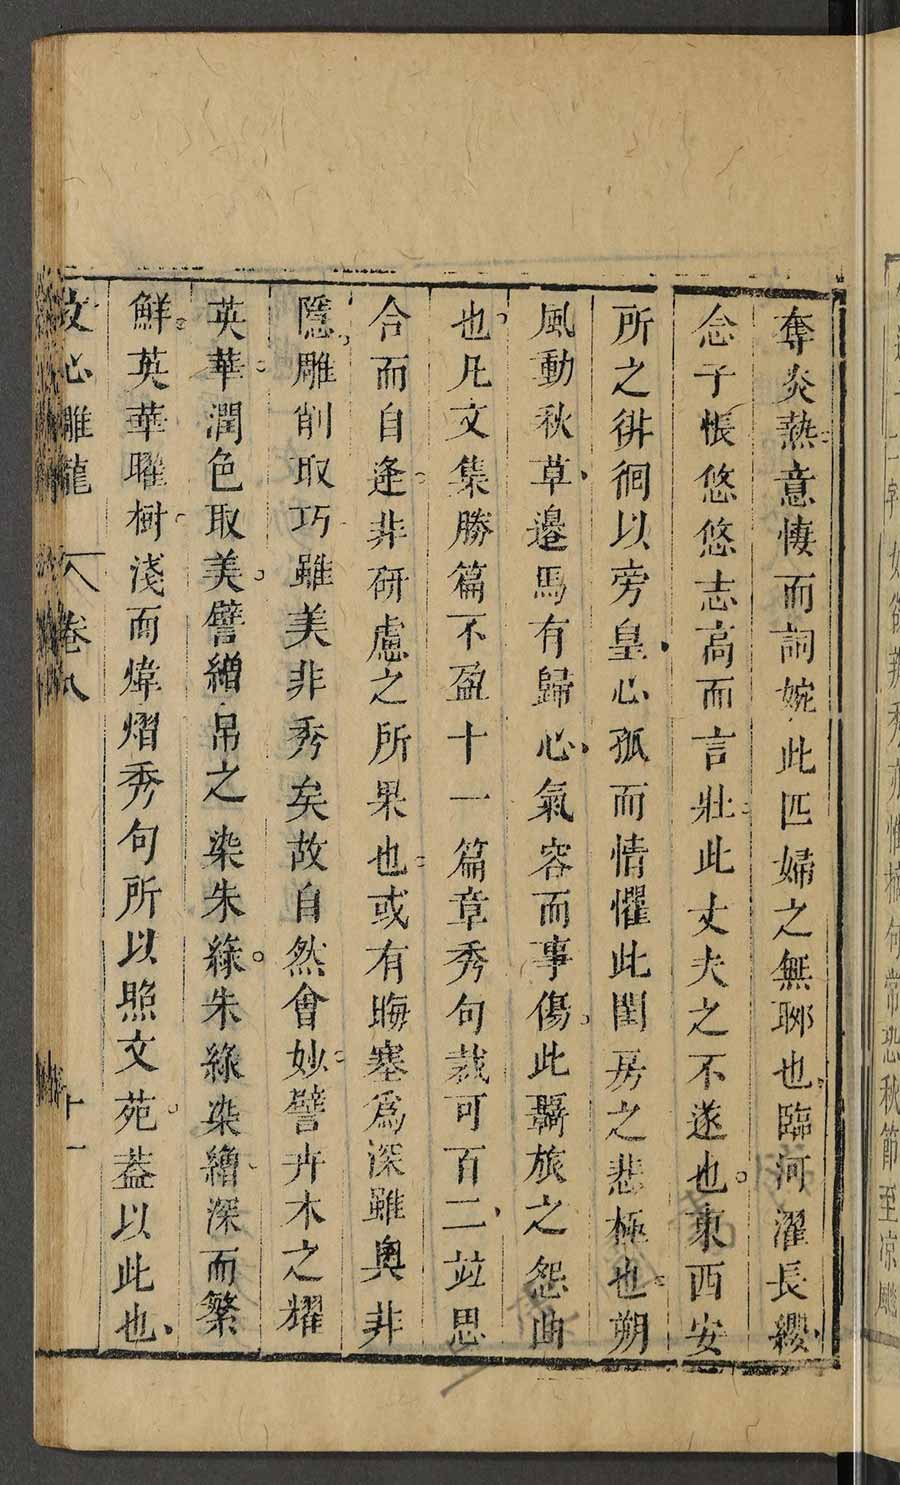 奪炎熱意悽而詞婉此匹婦之無聊也臨河濯長纓
念子悵悠悠志高而言壯此丈夫之不遂也東西安
所之徘徊以旁皇心孤而情懼此閨房之悲極也朔
風動秋草邊馬有歸心氣容而事傷此羇旅之怨曲
也凡文集勝篇不盈十一篇章秀句裁可百二竝思
合而自逢非研慮之所果也或有晦塞爲深雖奧非
隱雕削取巧雖美非秀矣故自然會妙譬卉木之耀
英華潤色取美譬繒帛之染朱綠朱綠染繒深而繁
鮮英華曜樹淺而煒熠秀句所以照文苑蓋以此也
文心雕龍 卷八 十一